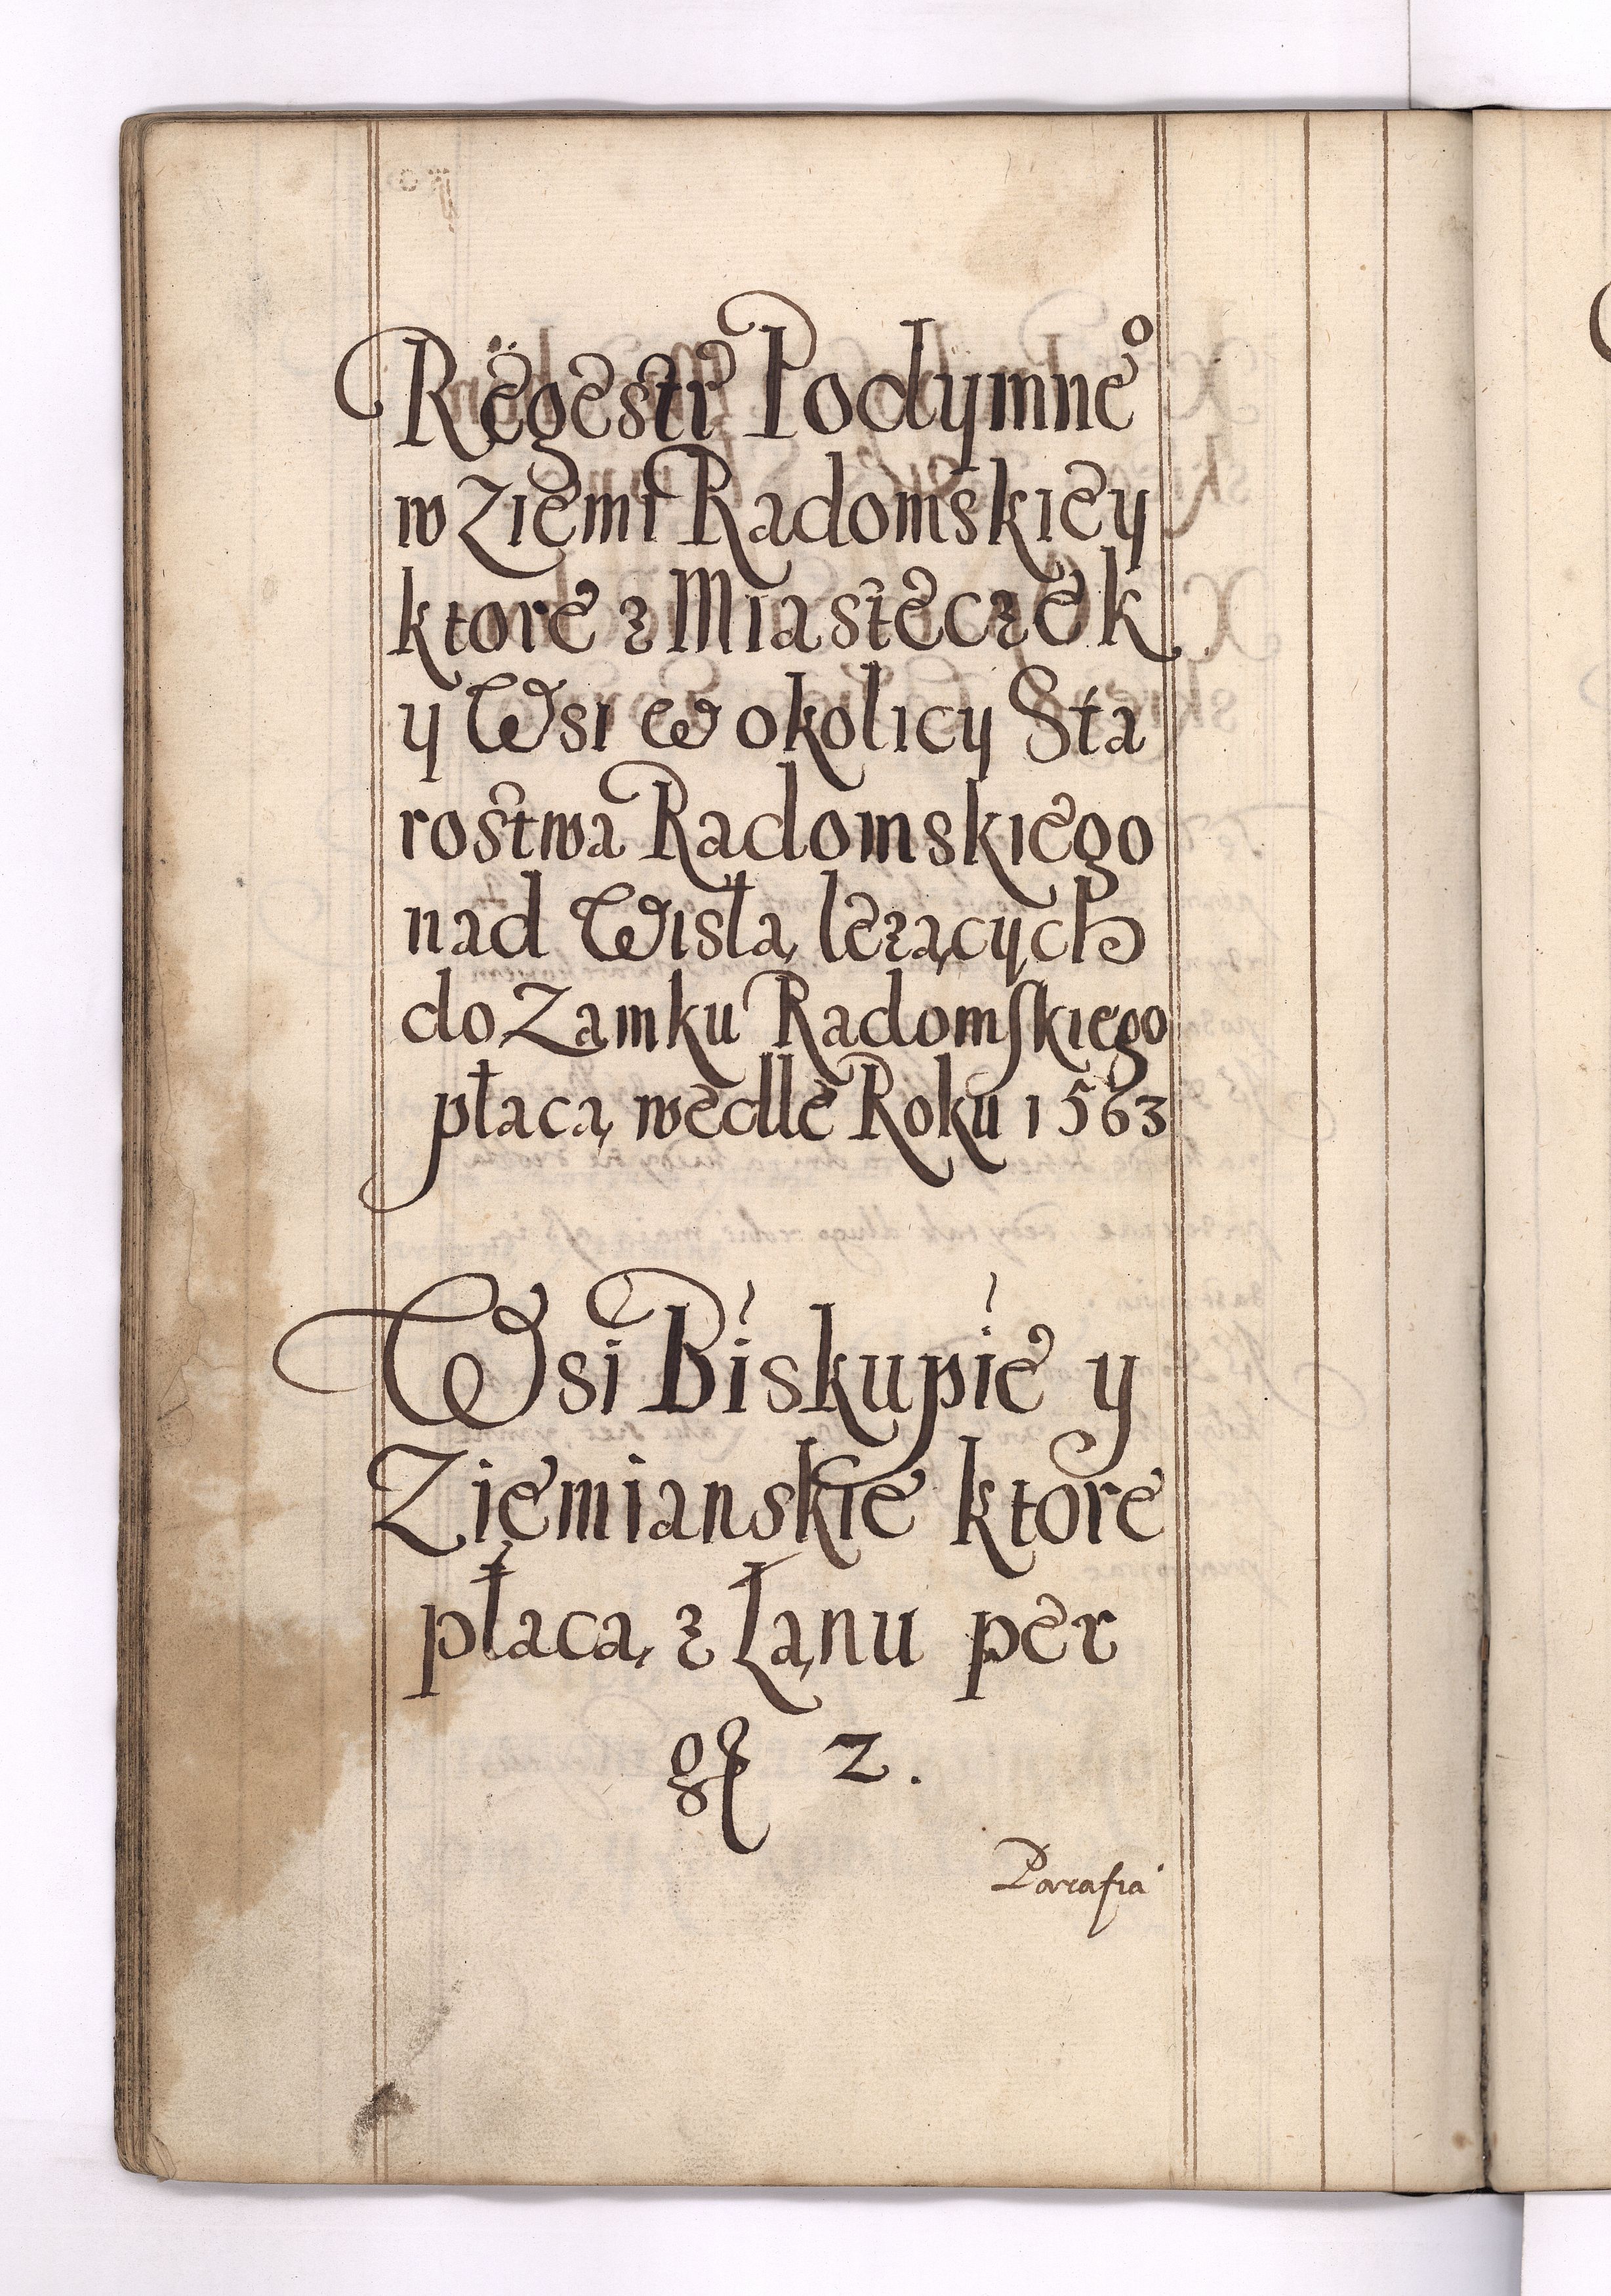 Regestr Podymne°
w Ziemi Radomskiey
ktore z Miasteczek
y Wsi w okolicy Sta
rostwa Radomskiego
nad Wisłą leżących
do Zamku Radomſkiego
płacą wedle Roku 1563
Wsi Biskupie y
Ziemianskie ktore
płacą z Łanu per
gſ 2.
Parafia